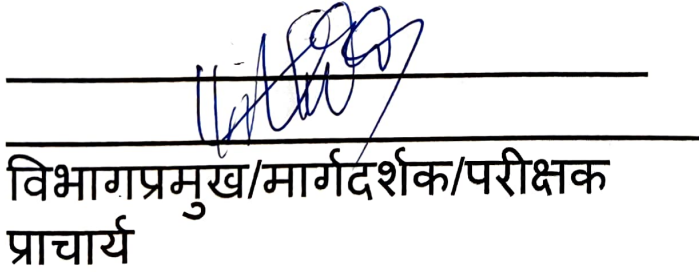 विभागप्रमुख/मार्गदर्शक/परीक्षक
प्राचार्य